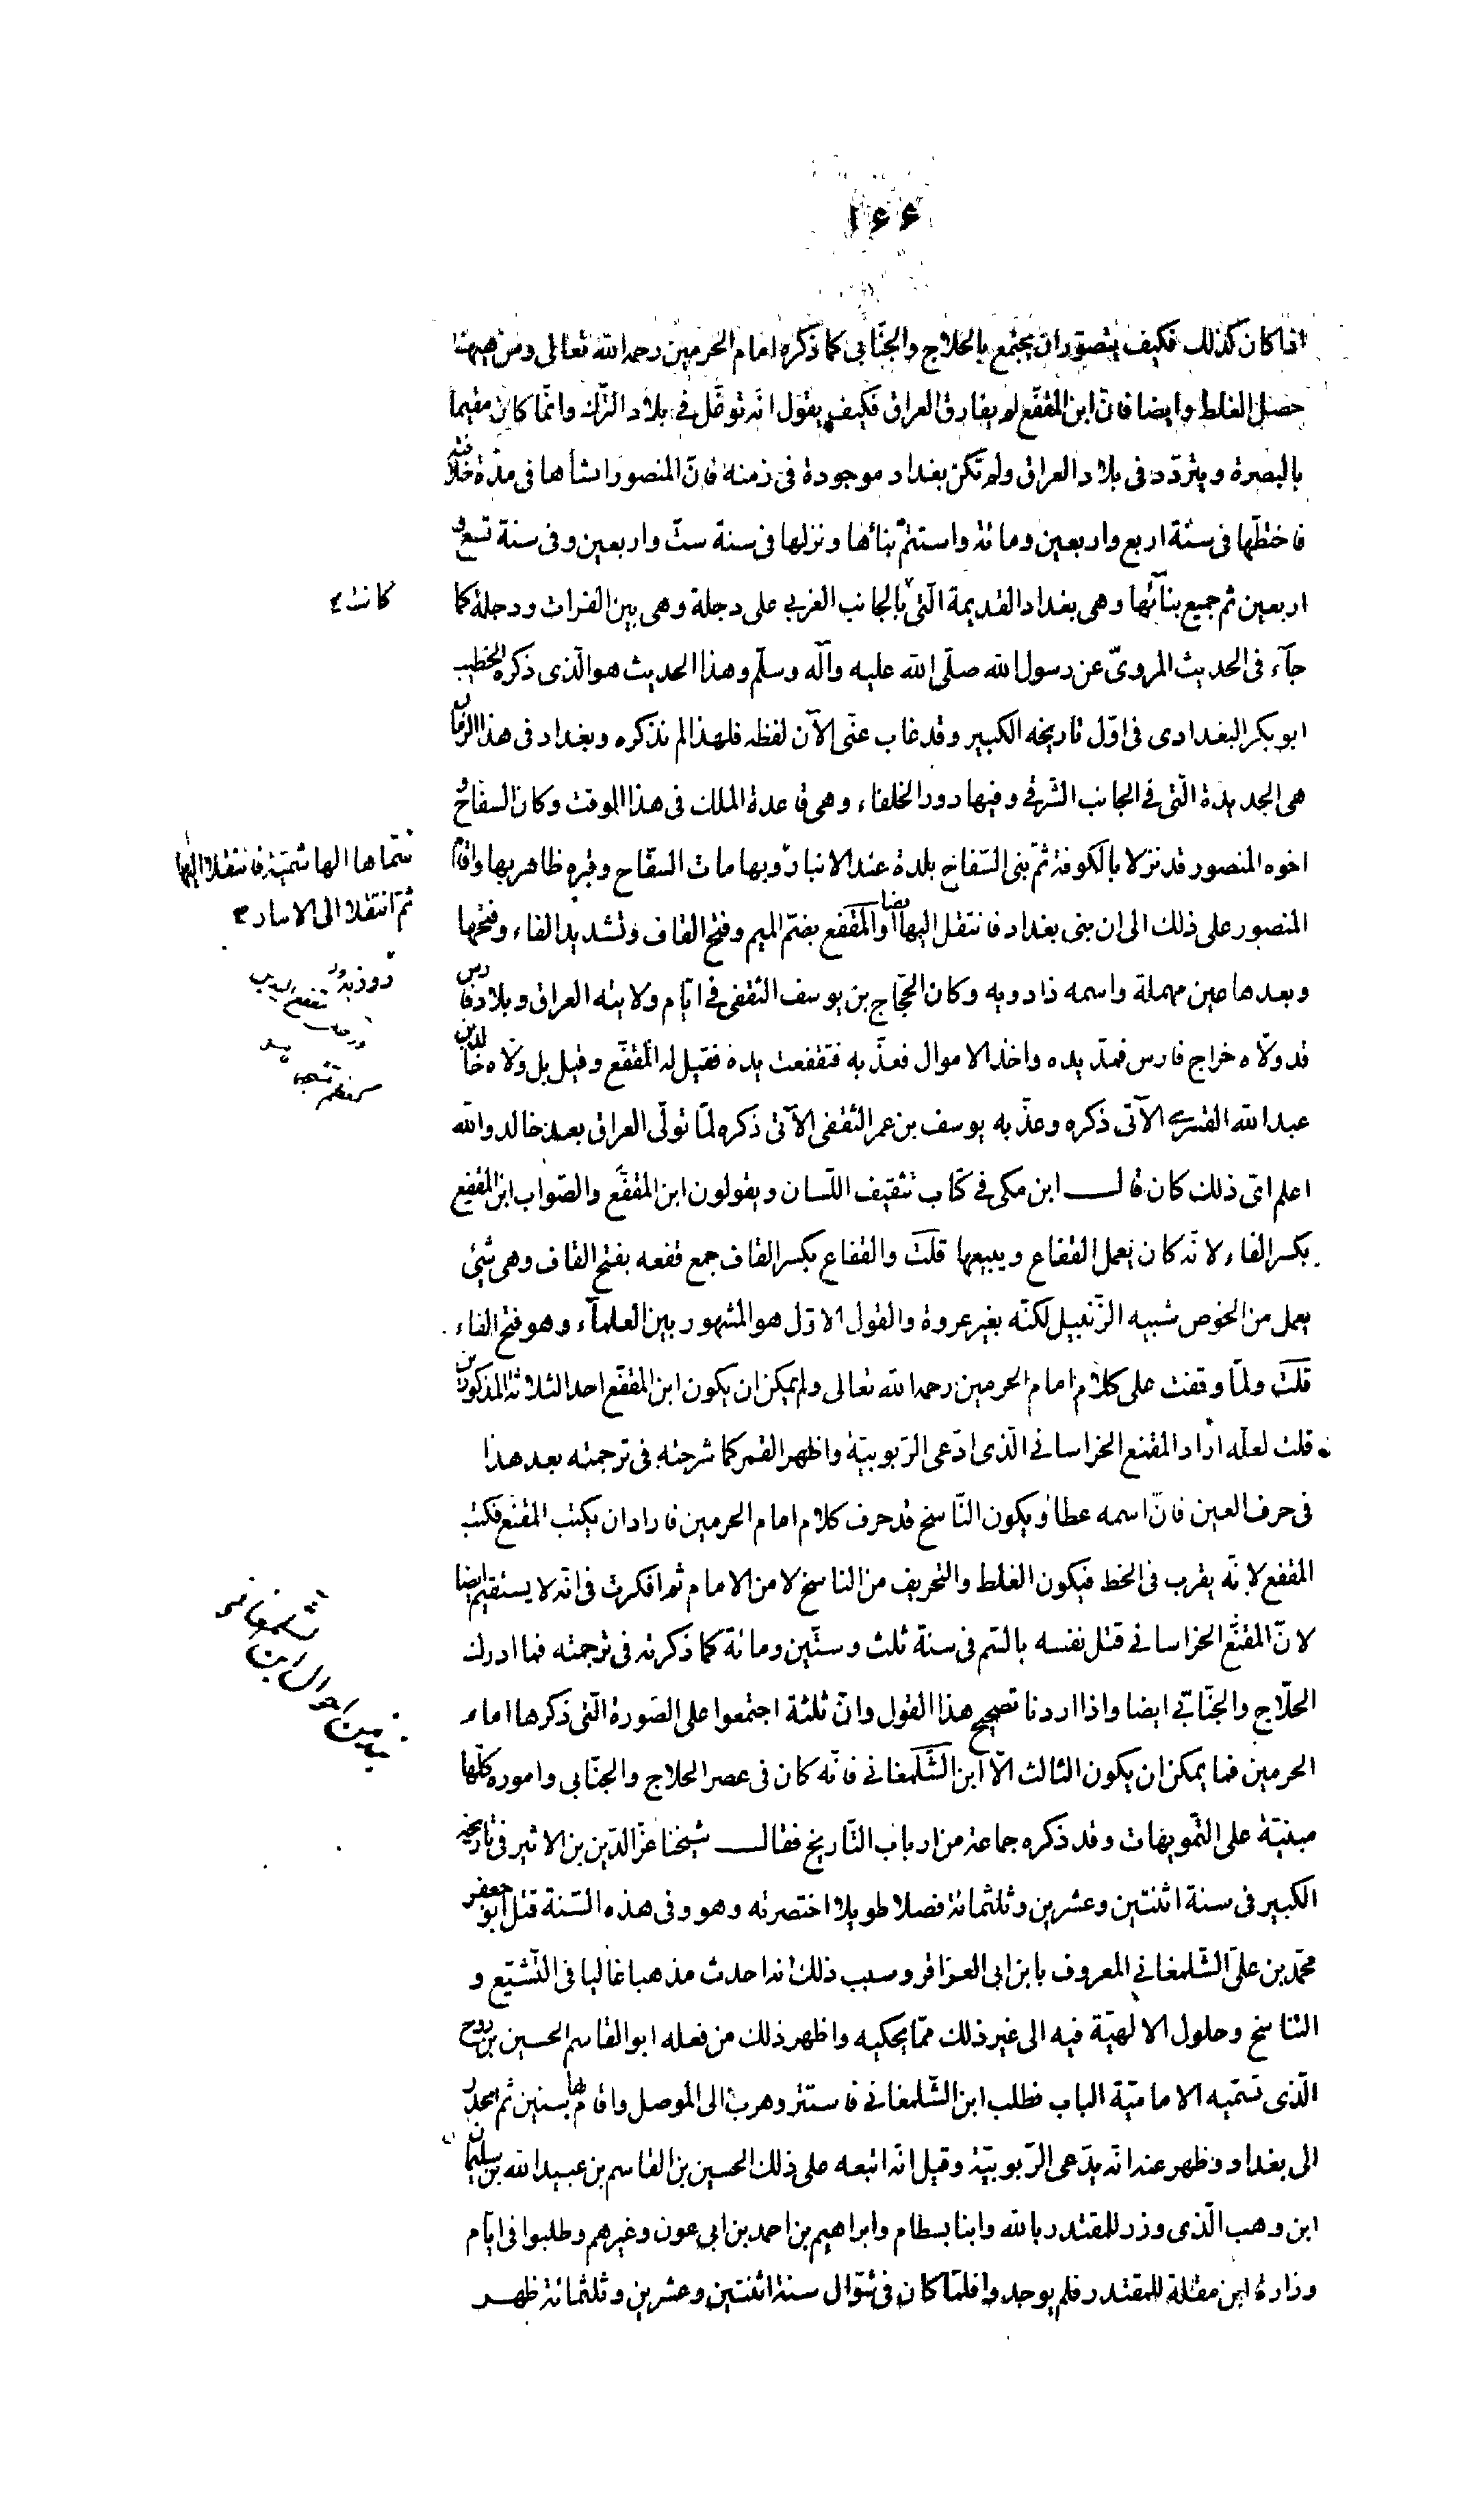 ١٦٦
اذا كان كذلك فكيف يتصوّر ان يجتمع بالحلاج والجنّابى كما ذكره امام الحرمين رحمه الله تعالى ومن هيهنا
حصل الغلط وايضا فانّ ابن المقفّع لم يفارق العراق فكيف يقول انّه توغّل فى بلاد الترك وانّما كان مقيما
بالبصرة ويتردّد فى بلاد العراق ولم تكن بغداد موجودة فى زمنه فانّ المنصور انشأها فى مدّة خلافته
فاختطّها فى سنة اربع واربعين ومائة واستتمّ بنائها ونزلها فى سنة ستّ واربعين وفى سنة تسع و
اربعين تم جميع بنآئها وهى بغداد القديمة الّتى بالجانب الغربى على دجلة وهى بين الفرات ودجلة كما
كانت
جآء فى الحديث المروىّ عن رسول الله صلّى الله عليه وآله وسلّم وهذا الحديث هو الّذى ذكره الخطيب
ابو بكر البغدادى فى اوّل تاريخه الكبير وقد غاب عنّى الآن لفظه فلهذا لم نذكره وبغداد فى هذا الزمان
هى الجديدة الّتى فى الجانب الشرقى وفيها دور الخلفاء وهى قاعدة الملك فى هذا الوقت وكان السفاح و
اخوه المنصور قد نزلا بالكوفة ثمّ بنى السّفاح بلدة عند الانبار وبها مات السفّاح وقبره ظاهر بها واقام
فسمّاها الهاشميّة فانتقلا اليها
ثمّ انتقلا الى الانبار
المنصور على ذلك الى ان بنى بغداد فانتقل اليها ايضا والمقفع بضمّ الميم وفتح القاف وتشديد الفاء وفتحها
وبعدها عين مهملة واسمه ذادويه وكان الحجّاج بن يوسف الثقفى فى ايّام ولايته العراق وبلاد فارس
قد ولّاه خراج فارس فمدّ يده واخذ الاموال فعذّبه فتقفعت يده فقيل له المقفّع وقيل بل ولّاه خالد بن
عبد الله القسرى الآتى ذكره وعذّبه يوسف بن عمر الثقفى الآتى ذكره لمّا تولّى العراق بعد خالد والله
اعلم اىّ ذلك كان قال ابن مكى فى كتاب تثقيف اللّسان ويقولون ابن المقفّع والصّواب ابن المقفع
بكسر الفاء لانّه كان يعمل القفاع ويبيعها قلت والقفاع بكسر القاف جمع قفعه بفتح القاف وهى شئ
يعمل من الخوص شبيه الزّنبيل لكنّه بغير عروة والقول الاوّل هو المشهور بين العلمآء وهو فتح الفاء
قلت ولمّا وقفت على كلام امام الحرمين رحمه الله تعالى ولم يمكن ان يكون ابن المقفّع احد الثلاثة المذكورين
قلت لعلّه اراد المقنع الخراسانى الّذى ادّعى الرّبوبيّة واظهر القمر كما شرحته فى ترجمته بعد هذا
فى حرف العين فانّ اسمه عطا ويكون النّاسخ قد حرف كلام امام الحرمين فاراد ان يكتب المقنع فكتب
المقفع لانّه يقرب فى الخط فيكون الغلط والتحريف من الناسخ لا من الامام ثم افكرت فى انّه لا يستقيم ايضا
لانّ المقنّع الخراسانى قتل نفسه بالسّم فى سنة ثلث وستّين ومائة كما ذكرته فى ترجمته فما ادرك
الحلّاج والجنّابىّ ايضا واذا اردنا تصحيح هذا القول وانّ ثلثة اجتمعوا على الصّورة الّتى ذكرها امام
الحرمين فما يمكن ان يكون الثالث الّا ابن الشّلمغانى فانّه كان فى عصر الحلاج والجنّابى واموره كلّها
مبنيّة على التّمويهات وقد ذكره جماعة من ارباب التّاريخ فقال شيخنا عزّ الدّين بن الاثير فى تاريخه
الكبير فى سنة اثنتين وعشرين وثلثمائة فصلا طويلا اختصرته وهو وفى هذه السّنة قتل ابو جعفر
محمّد بن علىّ الشّلمغانى المعروف بابن ابى العزاقر وسبب ذلك انّه احدث مذهبا غاليا فى التّشيّع و
التناسخ وحلول الالهيّة فيه الى غير ذلك ممّا يحكيه واظهر ذلك من فعله ابو القاسم الحسين بن روح
الّذى تسمّيه الاماميّة الباب فطلب ابن الشّلمغانى فاستتر وهرب الى الموصل واقام بها سنين ثم انحدر
الى بغداد وظهر عنه انّه يدّعى الرّبوبيّة وقيل انّه اتبعه على ذلك الحسين بن القاسم بن عبيد الله بن سليمان
ابن وهب الّذى وزر للمقتدر بالله وابنا بسطام وابراهيم بن احمد بن ابى عون وغيرهم وطلبوا فى ايّام
وزارة ابن مقلة للمقتدر فلم يوجدوا فلمّا كان فى شوّال سنة اثنتين وعشرين وثلثمائة ظهر